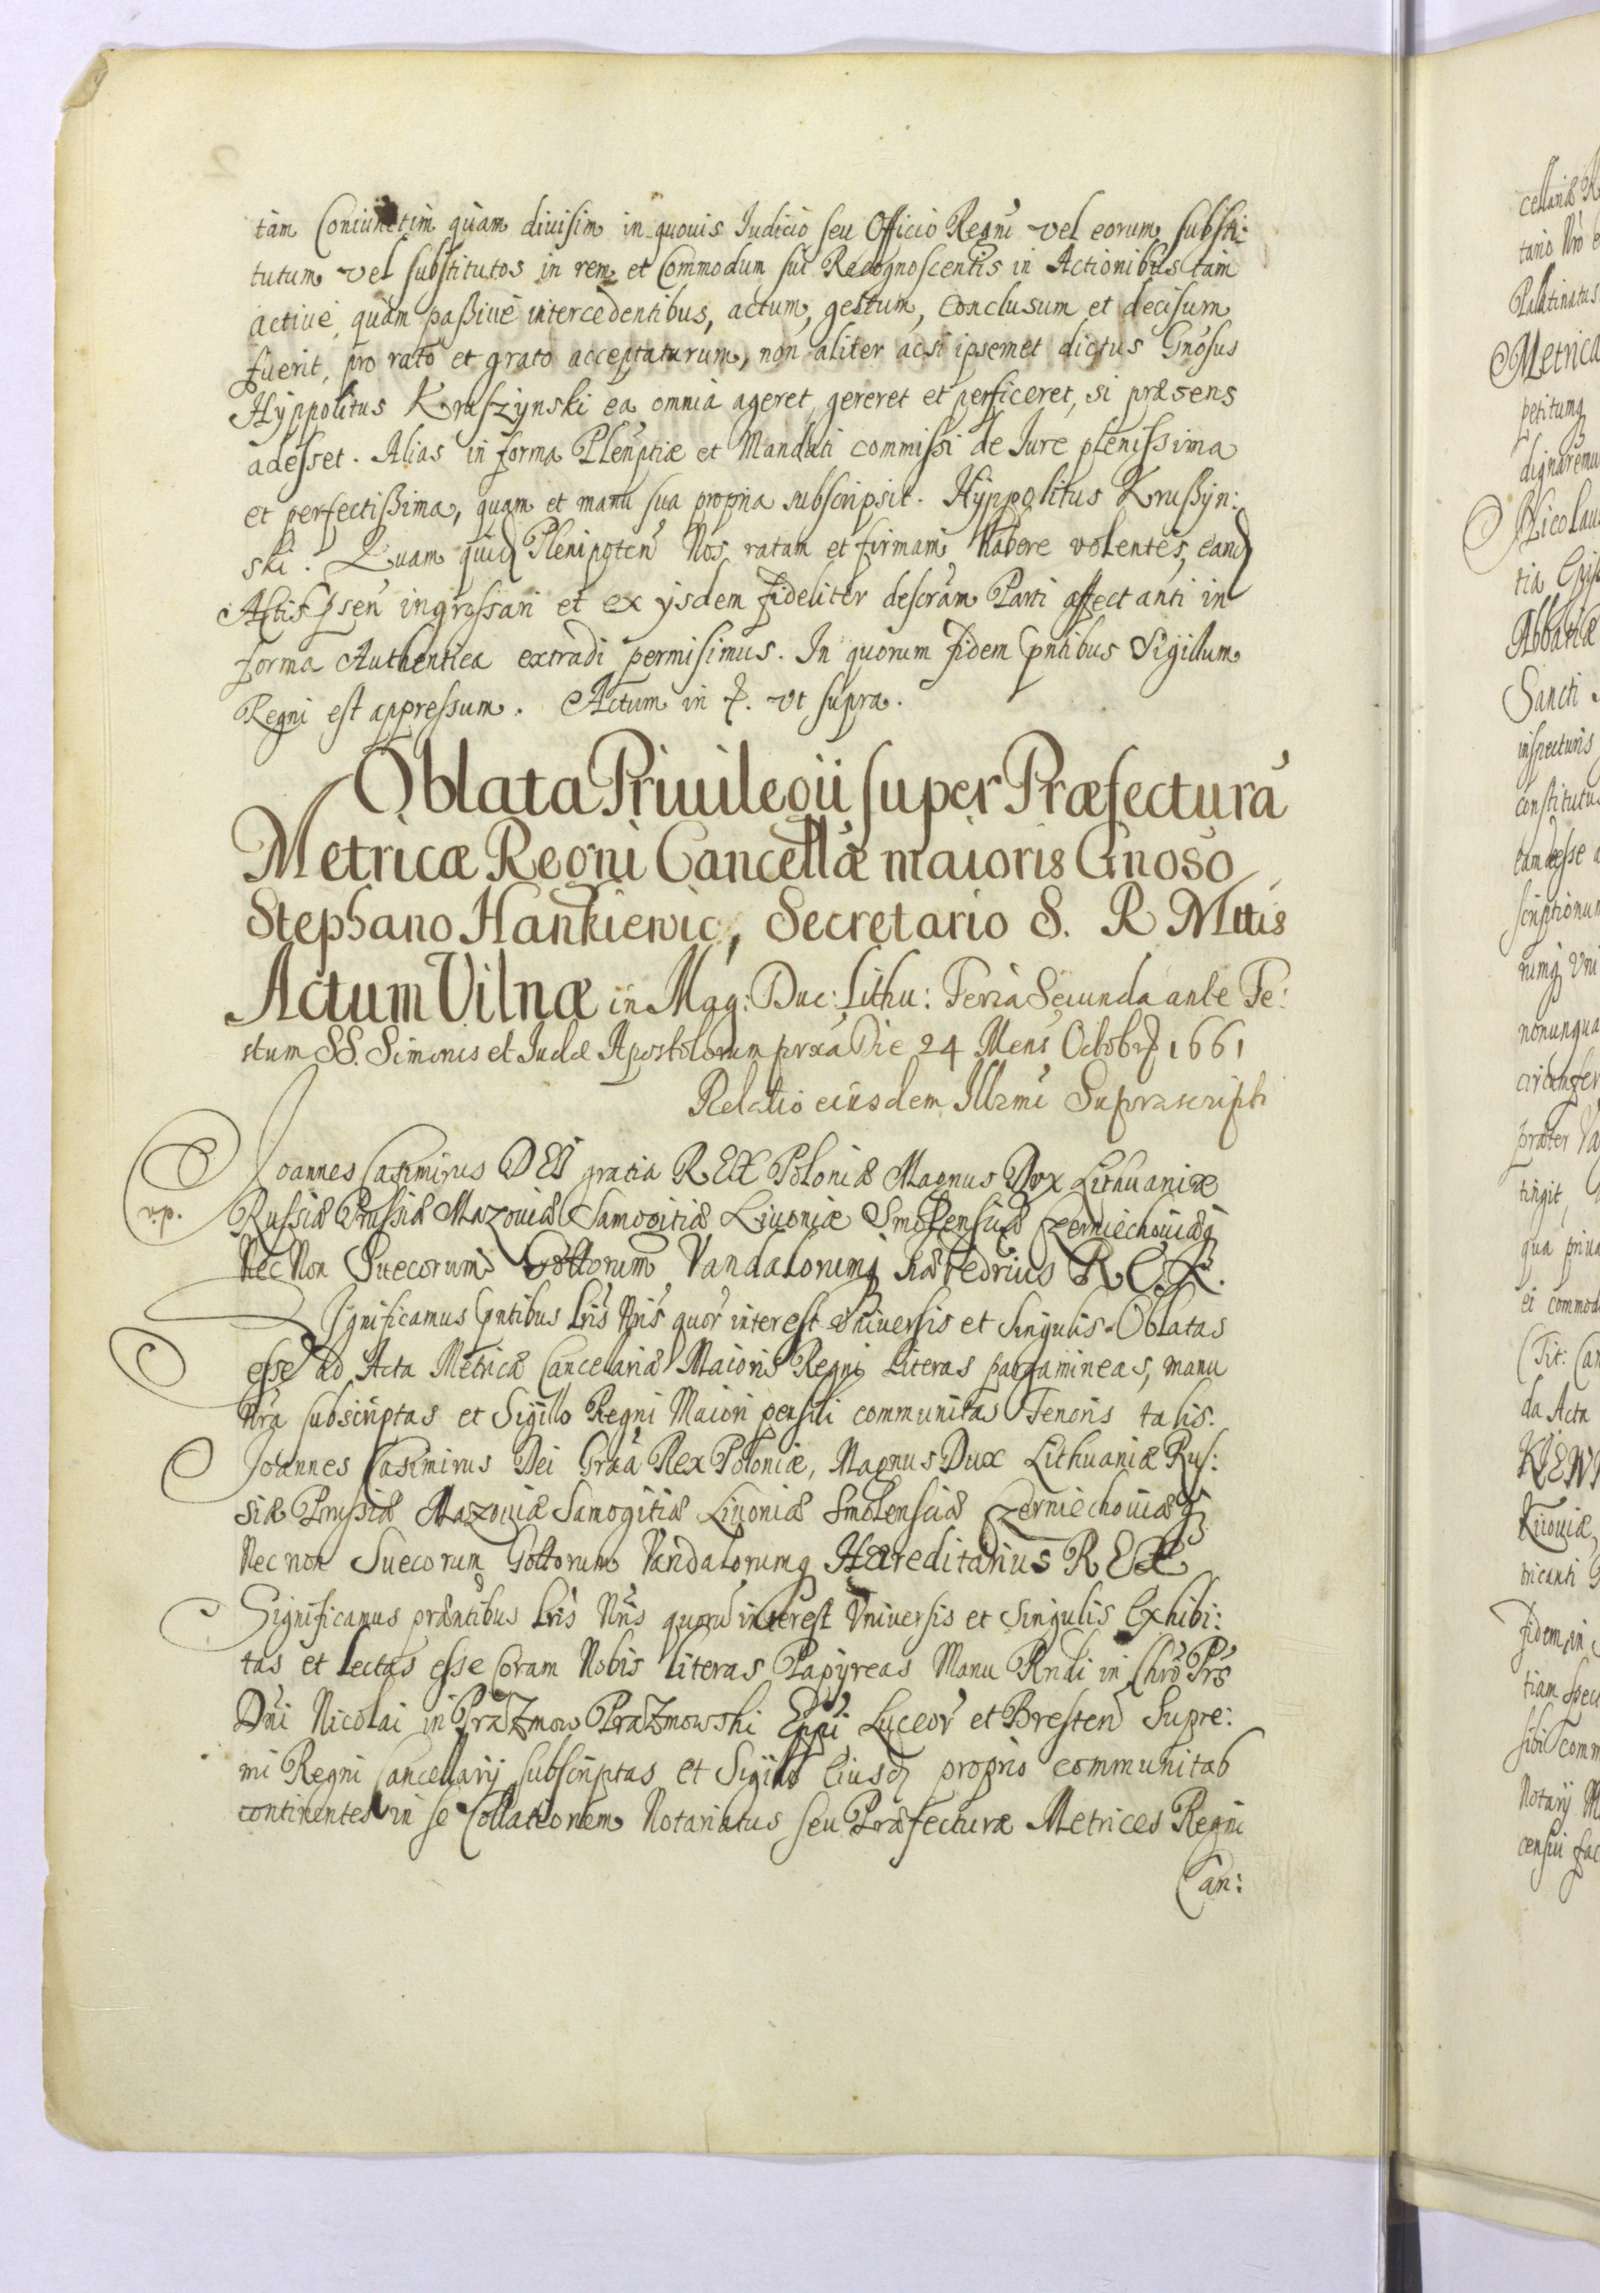 tam Coniunctim quam diuisim in quouis Iudicio seu Officio Regni vel eorum substi:
tutum vel substitutos in rem et Commodum sui Recognoscentis in Actionibus tam
actiue, quam passiue intercedentibus, actum, gestum, conclusum et decisum
fuerit, pro rato et grato acceptaturum, non aliter acsi ipsemet dictus Gnosus
Hyppolitus Kruszynski ea omnia ageret, gereret et perficeret, si præsens
adesset. Alias in forma Plenptiæ et Mandati commissi de Iure plenissima
et perfectissima, quam et manu sua propria subscripsit. Hyppolitus Krussyn:
ski. Quam quid Plenipoten Nos ratam et firmam habere volentes, eand
Actis psen ingrossari et ex ysdem fideliter descram Parti affectanti in
forma Authentica extradi permisimus. In quorum fidem pntibus Sigillum
Regni est appressum. Actum in f. vt supra.
Oblata Priuilegii super Præfectura
Metricæ Regni Cancellæ maioris Gnoso
Stephano Hankiewic, Secretario S. R Mttis
Actum Vilnæ in Mag: Duc: Lithu: Feria Secunda ante Fe:
stum SS. Simonis et Iudæ Apostolorum prxa Die 24 Mens Octobr 1661
Relatio eiusdem Illrmi Suprascripti
Joannes Casimirus DEI gratia REX Poloniæ Magnus Dux Lithuaniæ
v.p.
Russiæ Prussiæ Mazouiæ Samogitiæ Liuoniæ Smolensciæ Czerniechouiæq
Nec Non Suecorum Gottorum Vandalorumq hæredrius REX.
Significamus pntibus Lris Nris quor interest Vniuersis et Singulis. Oblatas
esse ad Acta Metricæ Cancelariæ Maioris Regni Literas pargamineas, manu
Nra subscriptas et Sigillo Regni Maiori pensili communitas Tenoris talis.
Joannes Casimirus Dei Graa Rex Poloniæ, Magnus Dux Lithuaniæ Rus:
siæ Prussiæ Mazouiæ Samogitiæ Liuoniæ Smolensciæ Czerniechouiæq
Nec non Suecorum Gottorum Vandalorumq Hæreditarius REX
Significamus præntibus Lris Nris quoru interest Vniuersis et Singulis Exhibi:
tas et Lectas esse Coram Nobis Literas Papyreas Manu Rndi in Chro Pris
Dni Nicolai in Prazmow Prazmowski Eppi Luceor et Bresten Supre:
mi Regni Cancellarij subscriptas et Sigillo Eiusd proprio communitas
continentes in se Collationem Notariatus seu Præfecturæ Metrices Regni
Can: